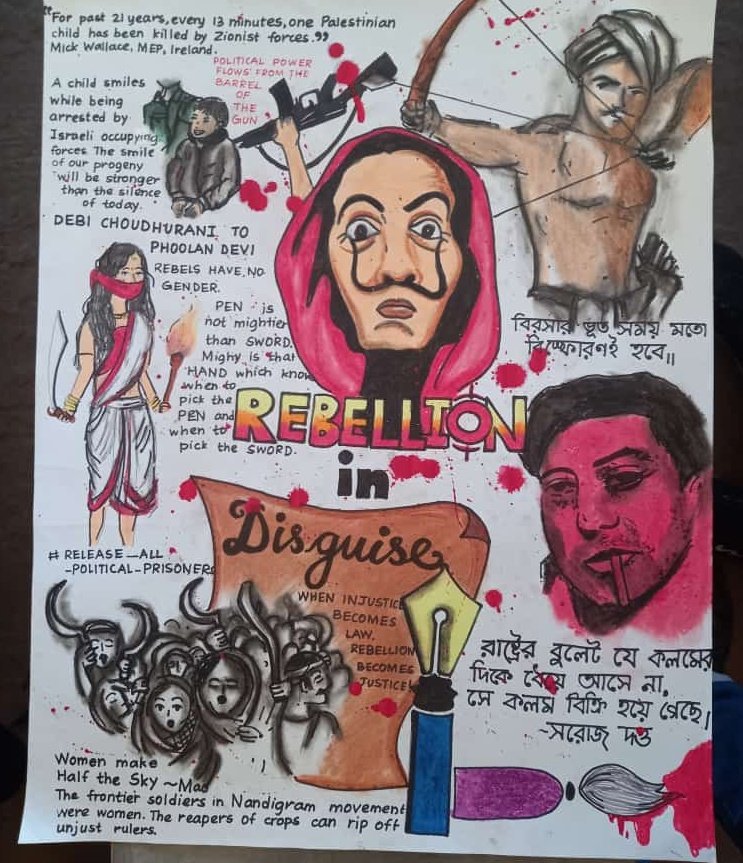 "For past 21 years, every 13 minutes, one Palestinian
child has been killed by Zionist forces."
Mick Wallace, MEP, Ireland.
POLITICAL POWER
FLOWS FROM THE
BARREL
OF
THE
GUN
A child smiles
while being
arrested by
Israeli occupying
forces. The smile
of our progeny
will be stronger
than the silence
of today.
DEBI CHOUDHURANI TO
PHOOLAN DEVI
REBELS HAVE NO
GENDER.
PEN is
not mightier
than SWORD.
Mighy is that
HAND which know
when to
pick the
PEN and
when to
pick the SWORD.
বিরসার ভূত সময় মতো
বিস্ফোরণই হবে॥
REBELLION
in
Disguise
# RELEASE_ALL
-POLITICAL-PRISONERS
WHEN INJUSTICE
BECOMES
LAW.
REBELLION
BECOMES
JUSTICE
রাষ্ট্রের বুলেট যে কলমের
দিকে ধেয়ে আসে না,
সে কলম বিক্রি হয়ে গেছে।
~সরোজ দত্ত
Women make
Half the Sky ~Mao
The frontier soldiers in Nandigram movement
were women. The reapers of crops can rip off
unjust rulers.